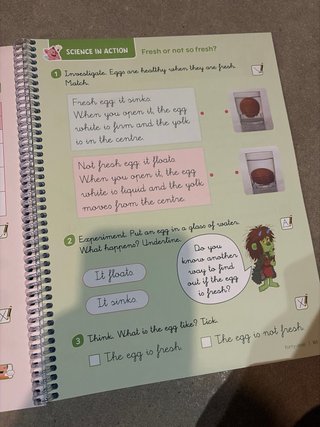 SCIENCE IN ACTION
Fresh or not so fresh?
1 Investigate. Eggs are healthy when they are fresh.
Match.
Fresh egg it sinks.
When you open it, the egg
white is firm and the yolk
is in the centre.
Not fresh egg it floats.
When you open it, the egg
white is liquid and the yolk
moves from the centre.
2 Experiment. Put an egg in a glass of water.
What happens? Underline.
It floats.
It sinks.
Do you
know another
way to find
out if the egg
is fresh?
3 Think. What is the egg like? Tick.
The egg is fresh.
The egg is not fresh.